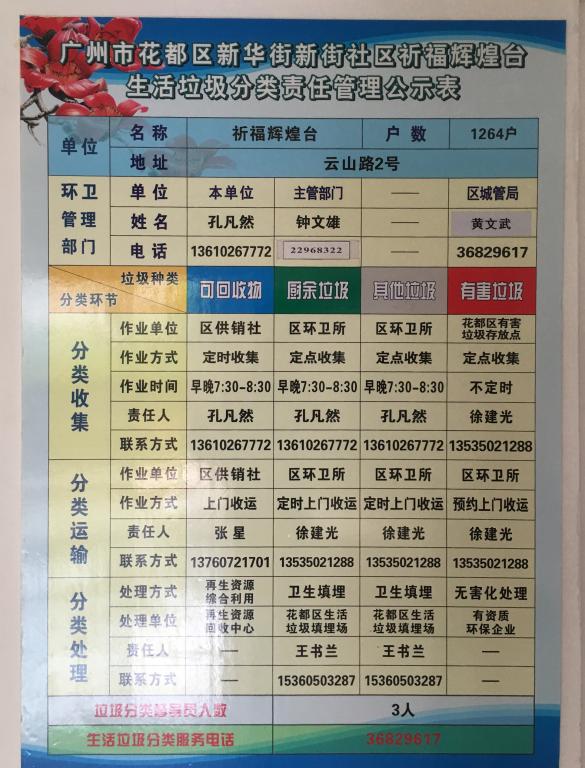 广州市花都区新华街新街社区祈福辉煌台
生活垃圾分类责任管理公示表
单位 名称 祈福辉煌台 户数 1264户
地址 云山路2号
环卫管理部门 单位 本单位 主管部门 —— 区城管局
姓名 孔凡然 钟文雄 —— 黄文武
电话 13610267772 22968322 —— 36829617
垃圾种类
分类环节 可回收物 厨余垃圾 其他垃圾 有害垃圾
分类收集 作业单位 区供销社 区环卫所 区环卫所 花都区有害垃圾存放点
作业方式 定时收集 定点收集 定点收集 定点收集
作业时间 早晚7:30-8:30 早晚7:30-8:30 早晚7:30-8:30 不定时
责任人 孔凡然 孔凡然 孔凡然 徐建光
联系方式 13610267772 13610267772 13610267772 13535021288
分类运输 作业单位 区供销社 区环卫所 区环卫所 区环卫所
作业方式 上门收运 定时上门收运 定时上门收运 预约上门收运
责任人 张星 徐建光 徐建光 徐建光
联系方式 13760721701 13535021288 13535021288 13535021288
分类处理 处理方式 再生资源综合利用 卫生填埋 卫生填埋 无害化处理
处理单位 再生资源回收中心 花都区生活垃圾填埋场 花都区生活垃圾填埋场 有资质环保企业
责任人 — 王书兰 王书兰 —
联系方式 — 15360503287 15360503287 —
垃圾分类督导员人数 3人
生活垃圾分类服务电话 36829617